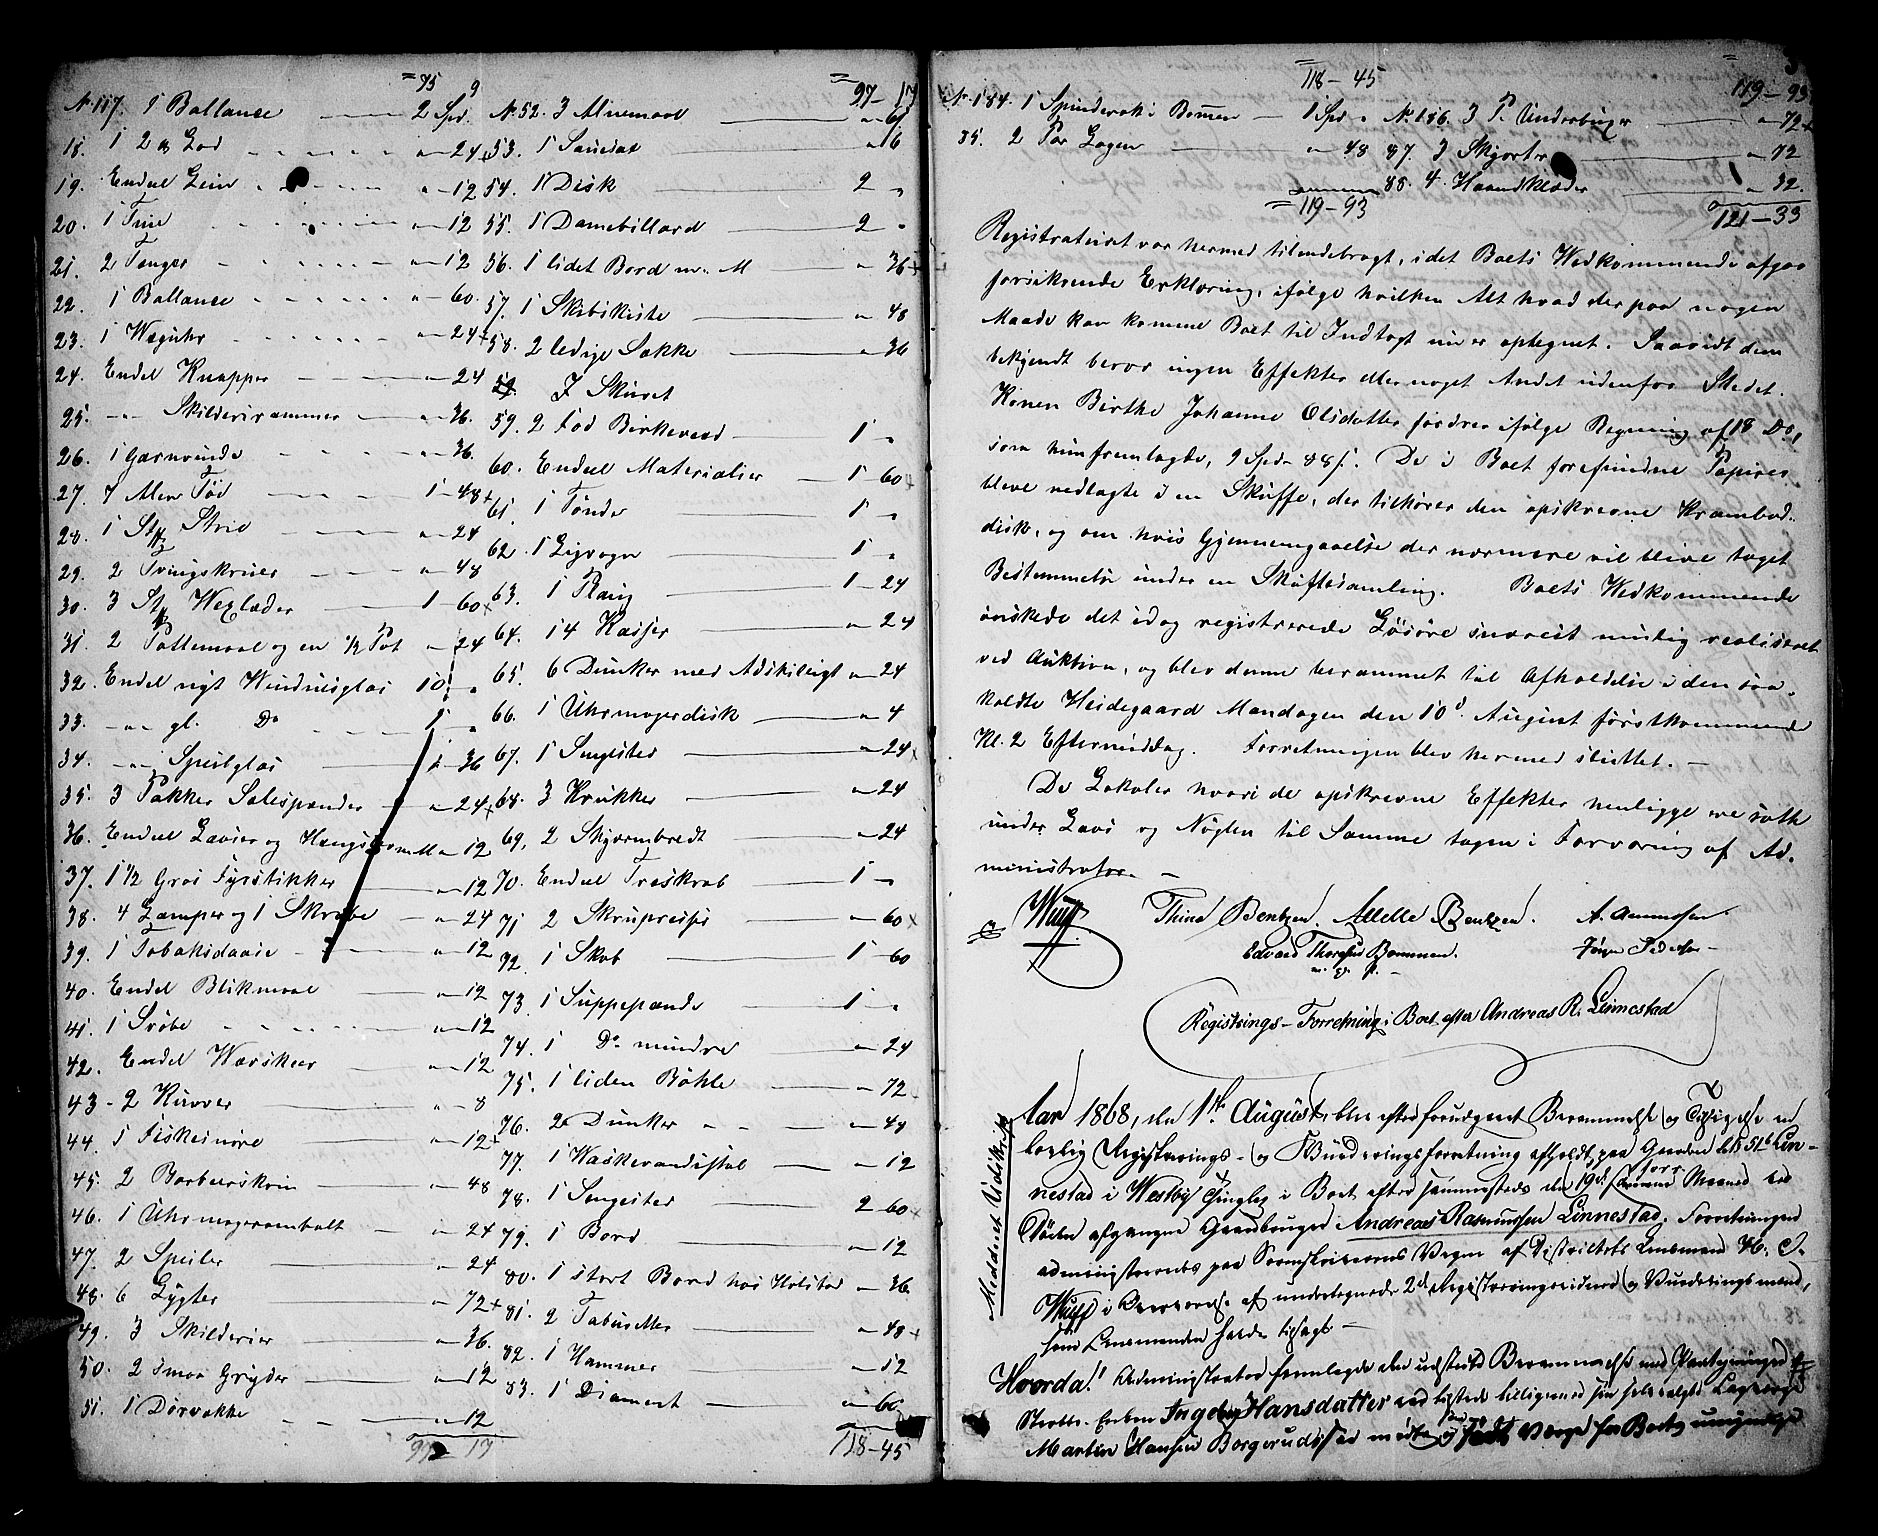 = 75 9
N. 117. 1 Ballance — 2 Spd.
18. 1 2 ℔ Lod " 24 +
19. Endeel Leim " 12
20. 1 Tine " 12
21. 2 Tenger " 12
22. 1 Ballance " 60.
23. 1 Væguhr " 24 +
24. Endel Knapper " 24
25. — " — Skilderirammer " 36.
26. 1 Garnvinde " 36.
27. 7 Alen Töi 1 - 48 +
28. 1 St. Strie " 24
29. 2 Tvingskruer " 48
30. 3 St. Voxlæder 1 - 60 x
31. 2 Pottemaal og en ½ Pot " 24
32. Endel nyt Vinduesglas 10 "
33. — " — gl. Do 1 "
34. — " — Speilglas 1 - 36
35. 3 Pakker Salespænder " 24 +
36. Endeel Laaser og Hængsler m. M " 12
37. 1 ½ Gros Fyrstikker " 12
38. 4 Lamper og 1 Skrabe " 24
39. 1 Tobaksdaase " 12
40. Endel Blikmaal " 12
41. 1 Svöbe " 12
42. Endel Værskeer " 12
43 - 2 Kurver " 8
44. 1 Fiskesnöre " 12 +
45. 2 Barbeerskrin " 48
46. 1 Uhrmagerambolt " 24
47. 2 Speiler " 24
48. 6 Lygter " 72 +
49. 3 Skilderier " 36.
50. 2 smaa Gryder " 12
51. 1 Dörvakke " 12
97 - 17
= 97 - 17
N. 52. 3 Alnemaal " 6
53. 1 Sauesax " 16
54. 1 Disk 2 "
55. 1 Damebillard 2 "
56. 1 lidet Bord m. M " 36 +
57. 1 Skibskiste " 48
58. 2 ledige Sække " 36
I Skuret
59. 2 Fod Birkeved 1 "
60. Endeel Materialier 1 60 +
61. 1 Tönde 1 "
62. 1 Ligvogn 1 "
63. 1 Plaug 1 - 24
64. 14 Kasser " 24
65. 6 Dunker med Adskilligt " 24
66. 1 Uhrmagerdisk " 4
67. 1 Sengsted " 24 x
68. 3 Krukker " 24
69. 2 Skjærmbredt " 24
70. Endeel Træskrab 1 "
71 2 Skruepresser " 60 x
72. 1 Skab 1 - 60
73. 1 Suppepande 1 "
74. 1 Do mindre " 24
75. 1 liden Böhle " 72
76. 2 Dunker " 48
77. 1 Vaskevandsfad " 12
78. 1 Sengested 2 - 60 x
79. 1 Bord " 12
80. 1 stort Bord hos Holstad " 36
81. 2 Taburetter " 48 +
82. 1 Hammer " 12
83. 1 Diament " 60
118 - 45
= 118 - 45
N. 184. 1 Spinderok i Bommen — 1 Spd "
85. 2 Par Lagen " 48
= 119 - 93
119 - 93
N. 186. 3 P. Underbuxer " 72 +
87. 3 Skjorter " 72
88. 4. Haandklæder " 32.
121 - 33
Registraturet var hermed tilendebragt, idet Boets Vedkommende afgav
forsikrende Erklæring, ifølge hvilken Alt hvad der paa nogen
Maade kan komme Boet til Indtægt nu er optegnet. Saavidt dem
bekjendt beror ingen Effekter eller noget Andet udenfor Stedet.
Konen Birthe Johanne Olsdatter fordrer ifølge Regning af 18 Ds,
som hun fremlagde, 9 Spd. 88 s. De i Boet forefundne Papirer
bleve nedlagte i en Skuffe, der tilhører den opskrevne Krambod-
disk, og om hvis Gjennemgaaelse der nærmere vil blive taget
Bestemmelse under en Skiftesamling. Boets Vedkommende
ønskede det idag registrerede Løsøre snarest mulig realiseret
ved Auktion, og blev denne berammet til Afholdelse i den saa-
kaldte Heidegaard Mandagen den 10d. August førstkommende
Kl. 2 Eftermiddag. Forretningen blev hermed sluttet. —
De Lokaler hvori de opskrevne Effekter henligge ere satte
under Laas og Nøglen til Samme tagen i Forvaring af Ad-
ministrator. —
Wulff Thina Bentzen. Mille Bentzen. A. Aamosen.
Edvard Thoresen Bommen. Jörgen Pedersen
m. f. p.
Registrings-Forretning i Boet efter Andreas R. Linnestad
Meddeelt Udskrift
Aar 1868, den 1ste August, blev efter forudgaaet Berammelse og Tilsigelse en
lovlig Registrerings- og Vurderingsforretning afholdt paa Gaarden Lb 51b Lin-
nestad i Vestby Thinglag i Boet efter sammesteds den 19d. forr. Maaned ved
Døden afgangne Gaardbruger Andreas Rasmussen Linnestad. Forretningen
administreredes paa Sorenskriverens Vegne af Districtets Lensmand H. J.
Wulff i Overværelse af undertegnede 2de Registreringsvidner og Vurderingsmænd,
som Lensmanden havde tilsagt —
Hvorda! Administrator fremlagde den udstedte Berammelse med Paategning
Strax Enken Ingeborg Hansdatter ved tilstede tilligemed sin selvvalgte Laugværge
Martin Hansen Borgerud, der mødte og som Værge for Boets umyndige